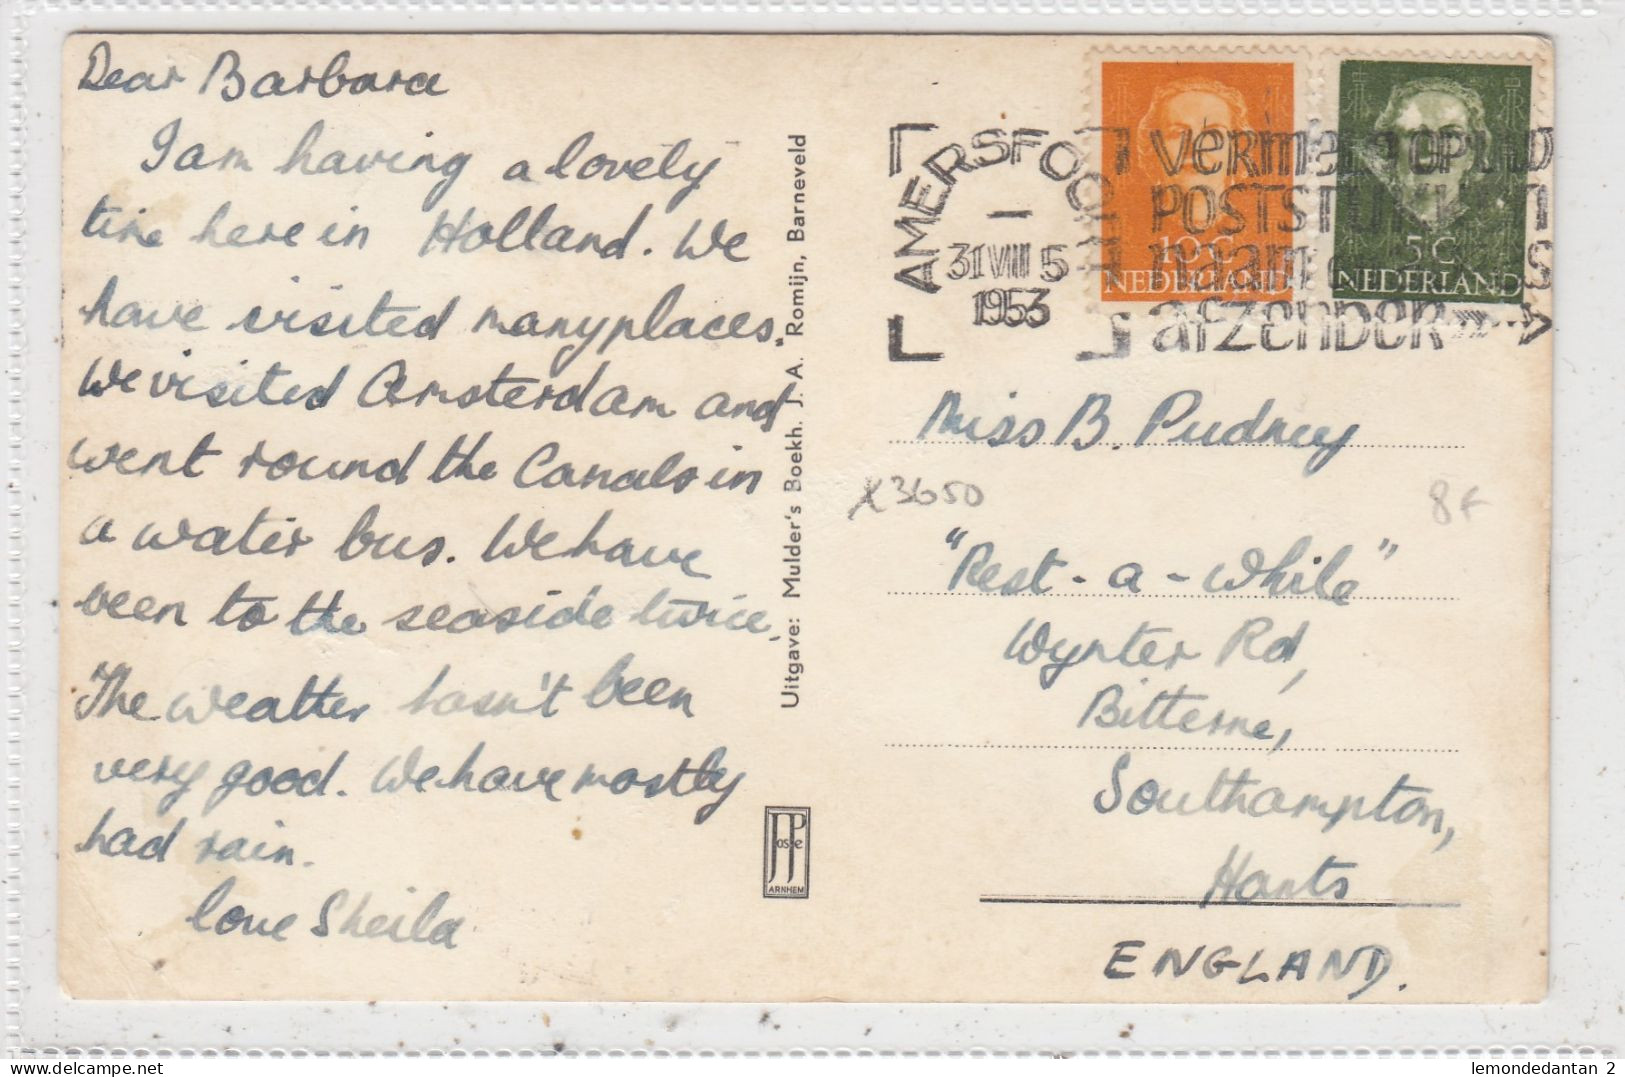 Dear Barbara
I am having a lovely
time here in Holland. We
have visited many places.
We visited Amsterdam and
went round the Canals in
a water bus. We have
been to the seaside twice.
The weather hasn't been
very good. We have mostly
had rain.
love Sheila
Uitgave: Mulder's Boekh. J. A. Romijn, Barneveld
JosPe
ARNHEM
AMERSFOORT
31 VIII 5
1953
VERMELD OP UW
POSTSTUKKEN
naam
afzender
10 C
NEDERLAND
5 C
NEDERLAND
Miss B. Pudney
X3650
8F
"Rest-a-While"
Wynter Rd,
Bitterne,
Southampton,
Hants
ENGLAND.
lemondedantan 2